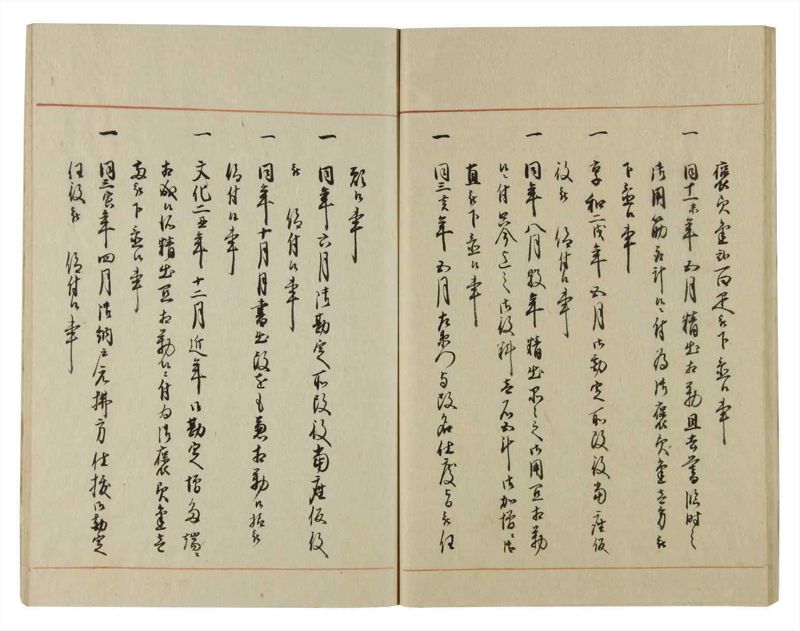 褒美金弐百疋被下置候事
一 同十一未年五月精出相勤且去暮臨時之
御用筋取計候ニ付為御褒美金壱分被
下置候事
一 享和二戌年五月御勘定所改役当座仮
役被 仰付候事
一 同年八月数年精出御用向相勤
候ニ付只今迄之御役料壱石五斗御加増ニ
直被下置候事
一 同三亥年五月左衛門与改名仕度旨被任
願候事
一 同年六月御勘定所改役当座仮役
被 仰付候事
一 同年十月書出改をも兼相勤候様被
仰付候事
一 文化二丑年十二月近年御勘定増多端ニ
相成候処精出相勤候ニ付為御褒美金壱
両被下置候事
一 同三寅年四月御納戸元払方仕捨御勘定
仮役被 仰付候事